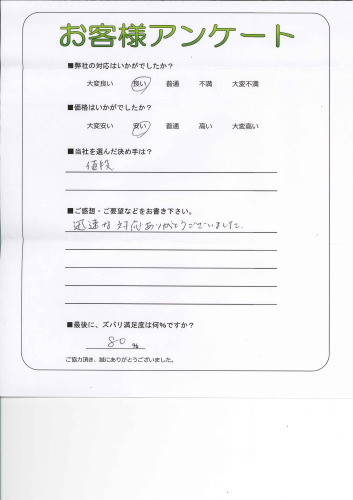 お客様アンケート
■弊社の対応はいかがでしたか？
大変良い 良い 普通 不満 大変不満
■価格はいかがでしたか？
大変安い 安い 普通 高い 大変高い
■当社を選んだ決め手は？
値段
■ご感想・ご要望などをお書き下さい。
迅速な対応ありがとうございました。
■最後に、ズバリ満足度は何%ですか？
80 %
ご協力頂き、誠にありがとうございました。